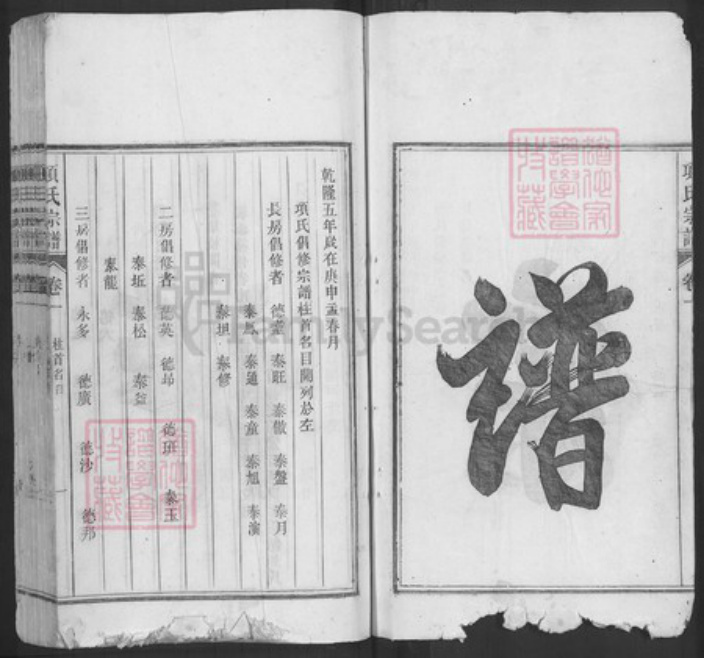 譜
項氏宗譜
卷一
乾隆五年歲在庚申孟春月
項氏倡修宗譜柱首名目開列於左
長房倡修者 德 泰旺 泰傲 泰盤 泰月
泰馬 泰通 泰童 泰旭 泰演
泰坦 泰修
二房倡修者 英 德昂 德班 泰玉
泰坵 泰松 泰益
泰龍
三房倡修者 永多 德廣 德沙 德邦
項氏宗譜
卷一
柱首名目
FamilySearch